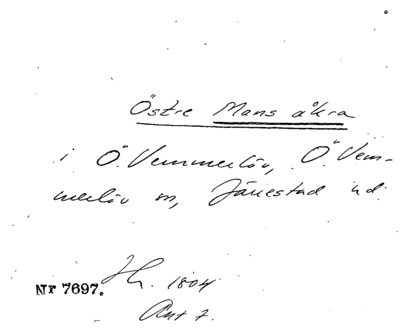 Östre Mans åkra
i Ö. Vemmerlöv, Ö. Vem-
merlöv sn, Järrestad hd.
Nr 7697.
1804
Art 7.